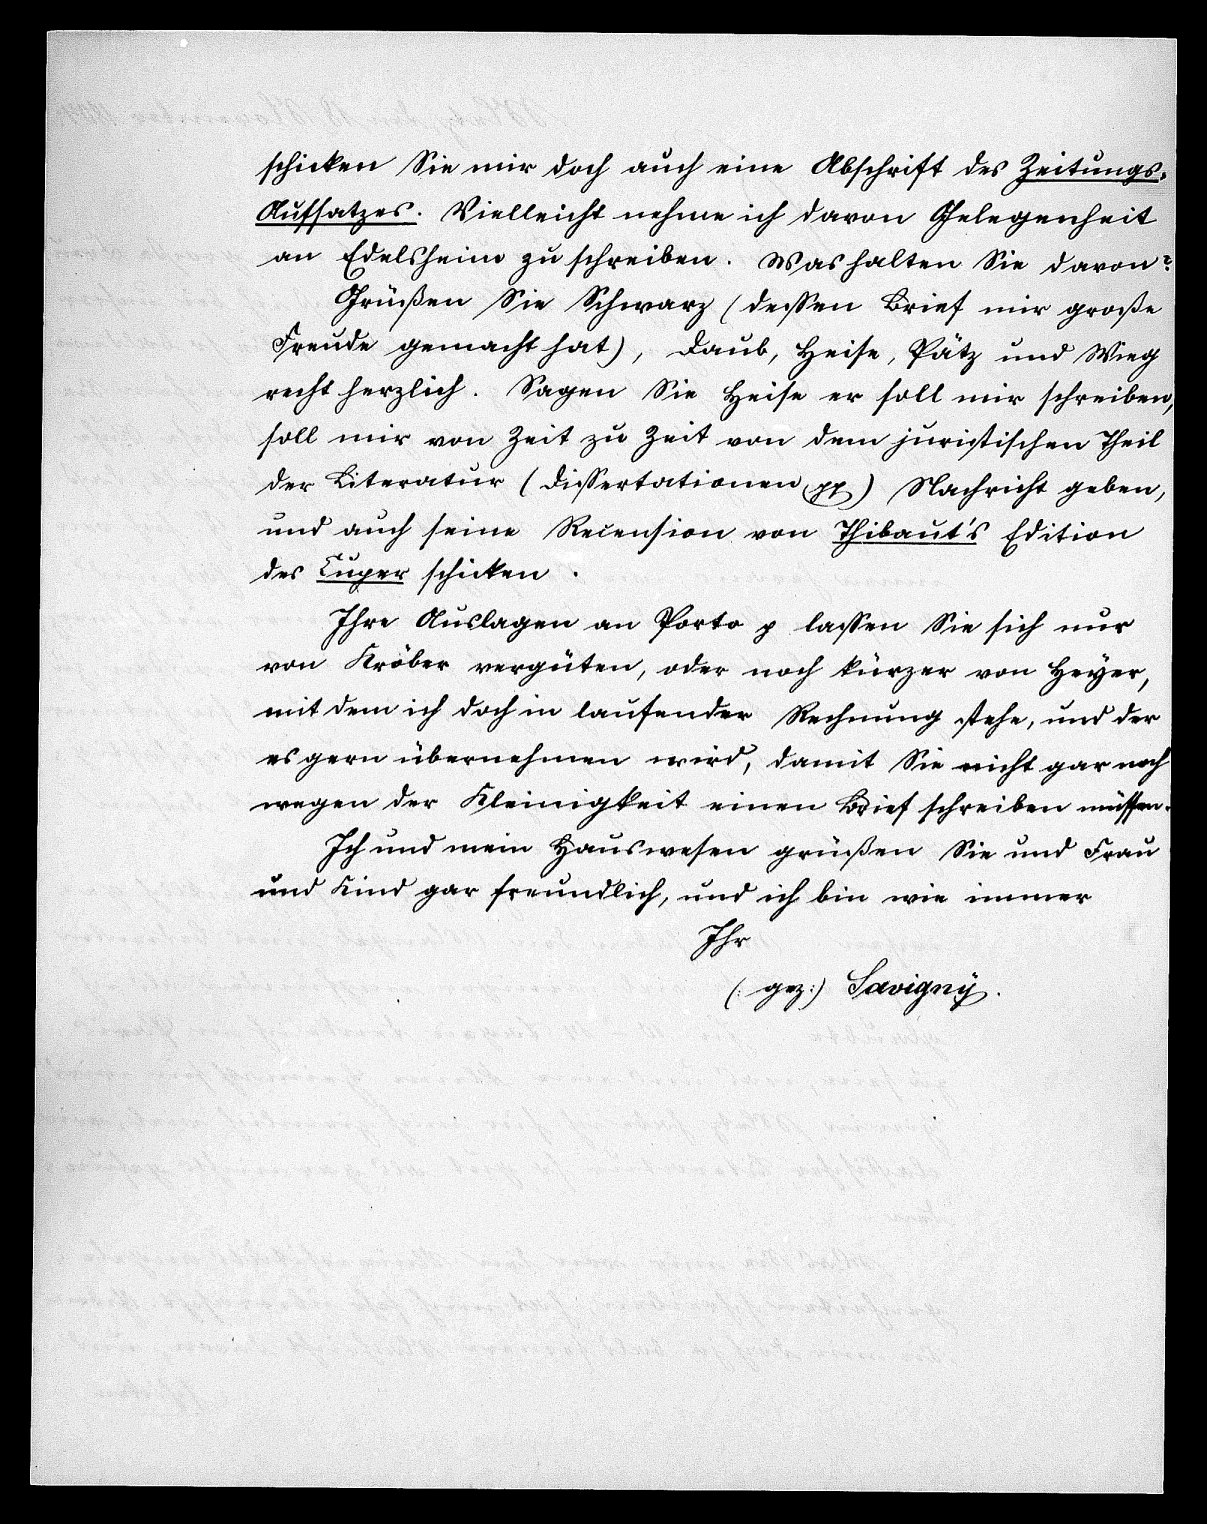 schicken Sie mir doch auch eine Abschrift des Zeitungs-
Aufsatzes. Vielleicht nehme ich davon Gelegenheit
an Edelsheim zu schreiben. Was halten Sie davon?
Grüßen Sie Schwarz (dessen Brief mir große
Freude gemacht hat), Daub, Heise, Pätz und Wieg
recht herzlich. Sagen Sie Heise er soll mir schreiben,
soll mir von Zeit zu Zeit von dem juristischen Theil
der Literatur (Dissertationen pp) Nachricht geben,
und auch seine Recension von Thibaut's Edition
des Cuper schicken.
Ihre Auslagen an Porto p lassen Sie sich nur
von Kröber vergüten, oder noch kürzer von Heyer,
mit dem ich doch in laufender Rechnung stehe, und der
es gern übernehmen wird, damit Sie nicht gar noch
wegen der Kleinigkeit einen Brief schreiben müssen.
Ich und mein Hauswesen grüßen Sie und Frau
und Kind gar freundlich, und ich bin wie immer
Ihr
(: gez:) Savigny.